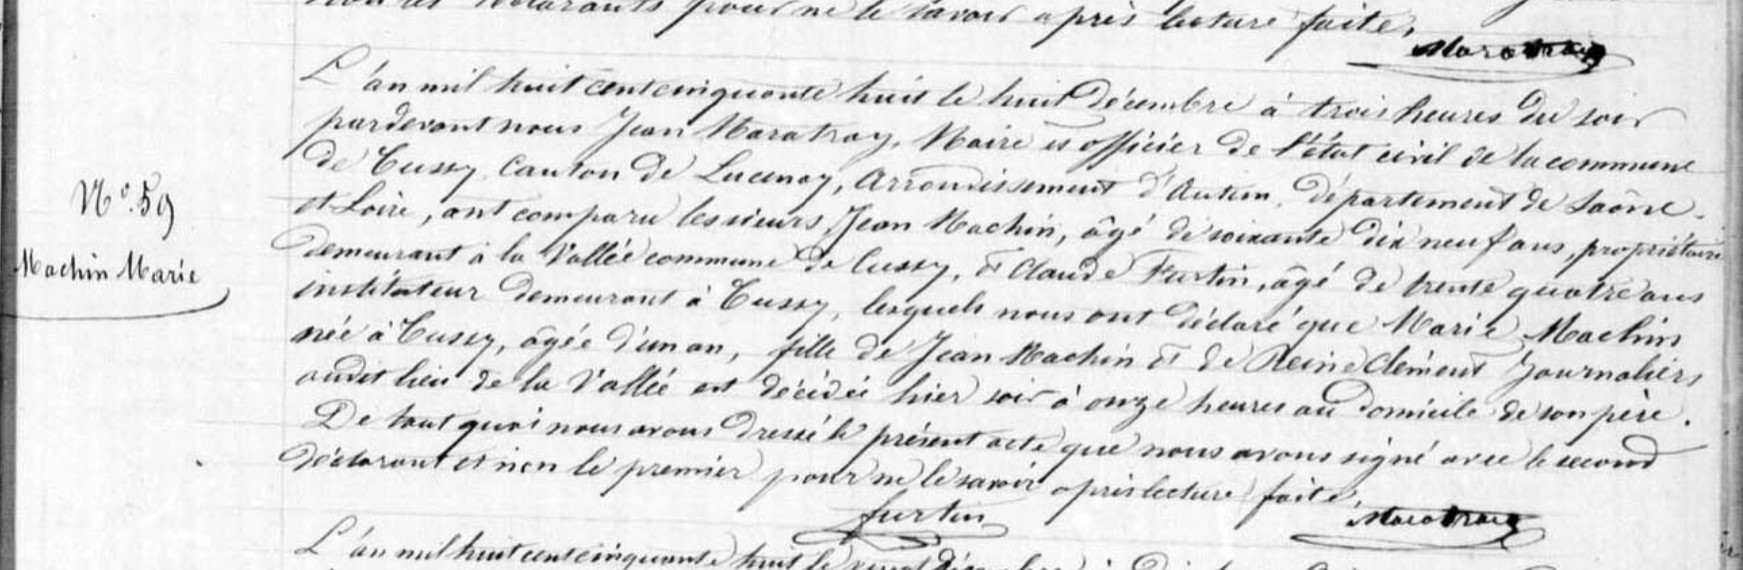 non les déclarants pour ne le savoir après lecture faite.
Maratray
L'an mil huit cent cinquante huit le huit Décembre à trois heures du soir
pardevant nous Jean Maratray, Maire et officier de l'état civil de la commune
de Cussy, Canton de Lucenay, Arrondissement d'Autun, département de Saône-
N° 59
et Loire, ont comparu les sieurs Jean Machin, âgé de soixante dix neuf ans, propriétaire
Machin Marie
demeurant à la Vallée commune de Cussy, et Claude Furtin, âgé de trente quatre ans
instituteur demeurant à Cussy, lesquels nous ont déclaré que Marie Machin
née à Cussy, âgée d'un an, fille de Jean Machin et de Reine Clément Journaliers
audit lieu de la Vallée est décédée hier soir à onze heures au domicile de son père.
De tout quoi nous avons dressé le présent acte que nous avons signé avec le second
déclarant et non le premier pour ne le savoir après lecture faite.
furtin
Maratray
L'an mil huit cent cinquante huit le